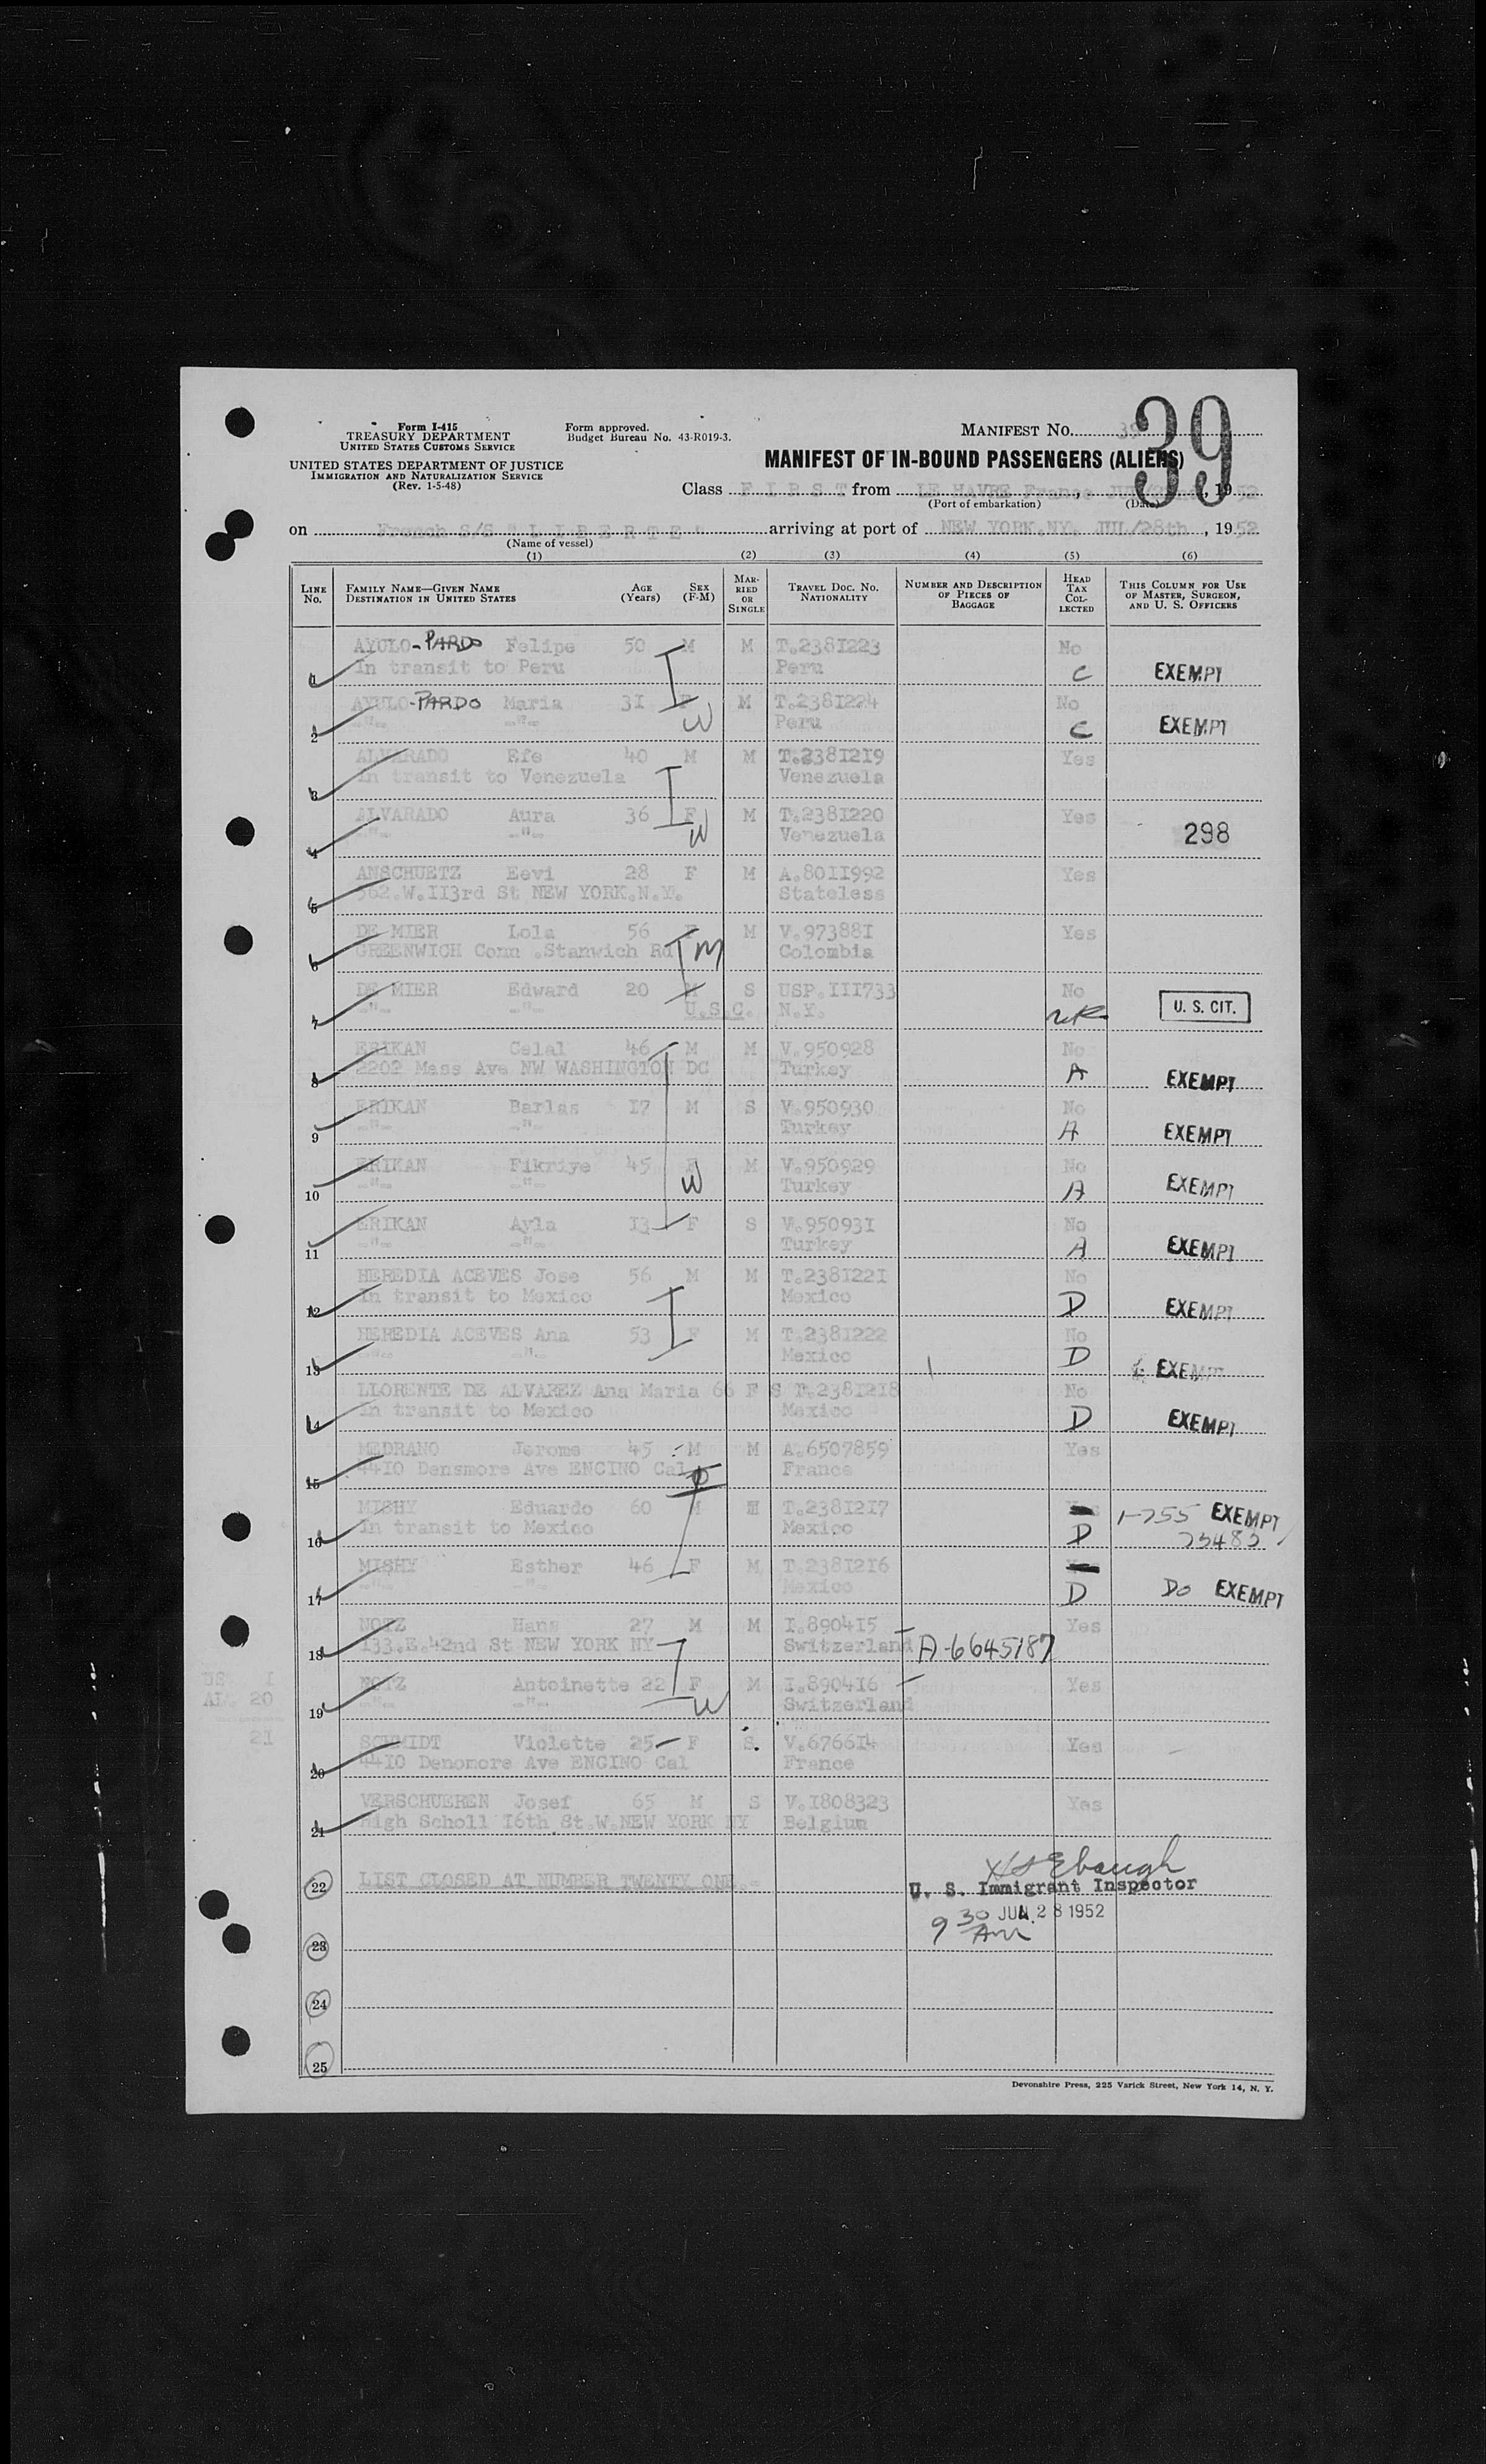 Form I-415
TREASURY DEPARTMENT
UNITED STATES CUSTOMS SERVICE
UNITED STATES DEPARTMENT OF JUSTICE
IMMIGRATION AND NATURALIZATION SERVICE
(Rev. 1-5-48)
Form approved.
Budget Bureau No. 43-R019-3.
MANIFEST No. 39
39
MANIFEST OF IN-BOUND PASSENGERS (ALIENS)
Class F I R S T from LE HAVRE France, 1952
(Port of embarkation) (Date)
on French S/S " L I B E R T E " arriving at port of NEW YORK.NY. JUL/28th, 1952
(Name of vessel)
(1) (2) (3) (4) (5) (6)
LINE No. FAMILY NAME—GIVEN NAME DESTINATION IN UNITED STATES AGE (Years) SEX (F-M) MARRIED OR SINGLE TRAVEL DOC. NO. NATIONALITY NUMBER AND DESCRIPTION OF PIECES OF BAGGAGE HEAD TAX COLLECTED THIS COLUMN FOR USE OF MASTER, SURGEON, AND U. S. OFFICERS
AYULO-PARDO Felipe 50 M M T.2381223 No
1 In transit to Peru Peru C EXEMPT
AYULO-PARDO Maria 31 F M T.2381224 No
2 -"- -"- W Peru C EXEMPT
ALVARADO Efe 40 M M T.2381219 Yes
3 In transit to Venezuela Venezuela
ALVARADO Aura 36 F M T.2381220 Yes
4 -"- -"- W Venezuela 298
ANSCHUETZ Eevi 28 F M A.8011992 Yes
5 562.W.113rd St NEW YORK.N.Y. Stateless
DE MIER Lola 56 F M V.973881 Yes
6 GREENWICH Conn .Stanwich Rd M Colombia
DE MIER Edward 20 M S USP.111733 No
7 -"- -"- U.S.C. N.Y. U. S. CIT.
ERIKAN Celal 46 M M V.950928 No
8 2202 Mass Ave NW WASHINGTON DC Turkey A EXEMPT
ERIKAN Barlas 17 M S V.950930 No
9 -"- -"- Turkey A EXEMPT
ERIKAN Fikriye 45 F M V.950929 No
10 -"- -"- W Turkey A EXEMPT
ERIKAN Ayla 13 F S V.950931 No
11 -"- -"- Turkey A EXEMPT
HEREDIA ACEVES Jose 56 M M T.2381221 No
12 In transit to Mexico Mexico D EXEMPT
HEREDIA ACEVES Ana 53 F M T.2381222 No
13 -"- -"- Mexico D EXEMPT
LLORENTE DE ALVAREZ Ana Maria 66 F S T.2381218 No
14 In transit to Mexico Mexico D EXEMPT
MEDRANO Jerome 45 M M A.6507859 Yes
15 4410 Densmore Ave ENCINO Cal France
MISHY Eduardo 60 M M T.2381217 1-755 EXEMPT
16 In transit to Mexico Mexico D
MISHY Esther 46 F M T.2381216
17 -"- -"- Mexico D Do EXEMPT
NOTZ Hans 27 M M I.890415 Yes
18 133.E.42nd St NEW YORK NY Switzerland A-6645187
NOTZ Antoinette 22 F M I.890416 Yes
19 -"- -"- W Switzerland
US 1
AL 20
21
SCHMIDT Violette 25 F S. V.676614 Yes
20 4410 Denomore Ave ENCINO Cal France
VERSCHUEREN Josef 65 M S V.1808323 Yes
21 High Scholl 16th St.W.NEW YORK NY Belgium
22 LIST CLOSED AT NUMBER TWENTY ONE.-
H S Ebaugh
U. S. Immigrant Inspector
9 30 AM JUL 28 1952
23
24
25
Devonshire Press, 225 Varick Street, New York 14, N. Y.